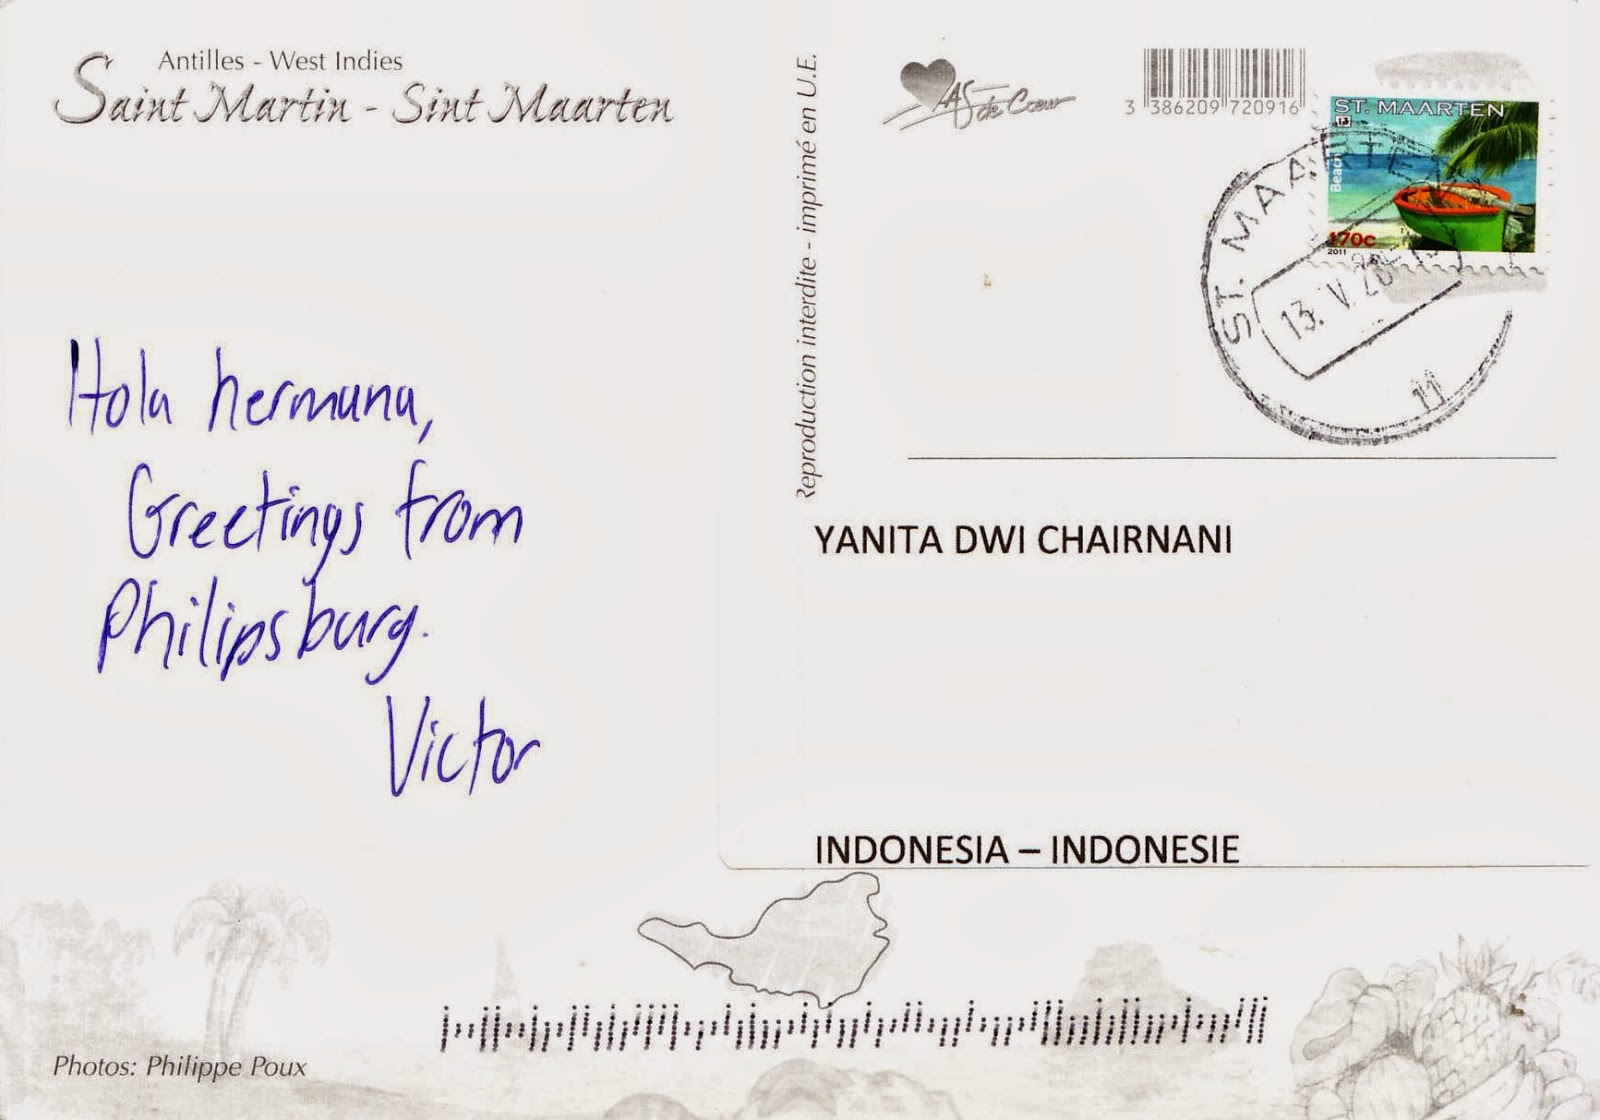 Antilles - West Indies
Saint Martin - Sint Maarten
Hola hermana,
Greetings from
Philipsburg.
Victor
Photos: Philippe Poux
Reproduction interdite - imprimé en U.E.
AS de Cœur
3 386209 720916
ST. MAARTEN
13
Beach
170c
2011
ST. MAARTEN
13. V. 20
11
YANITA DWI CHAIRNANI
INDONESIA – INDONESIE